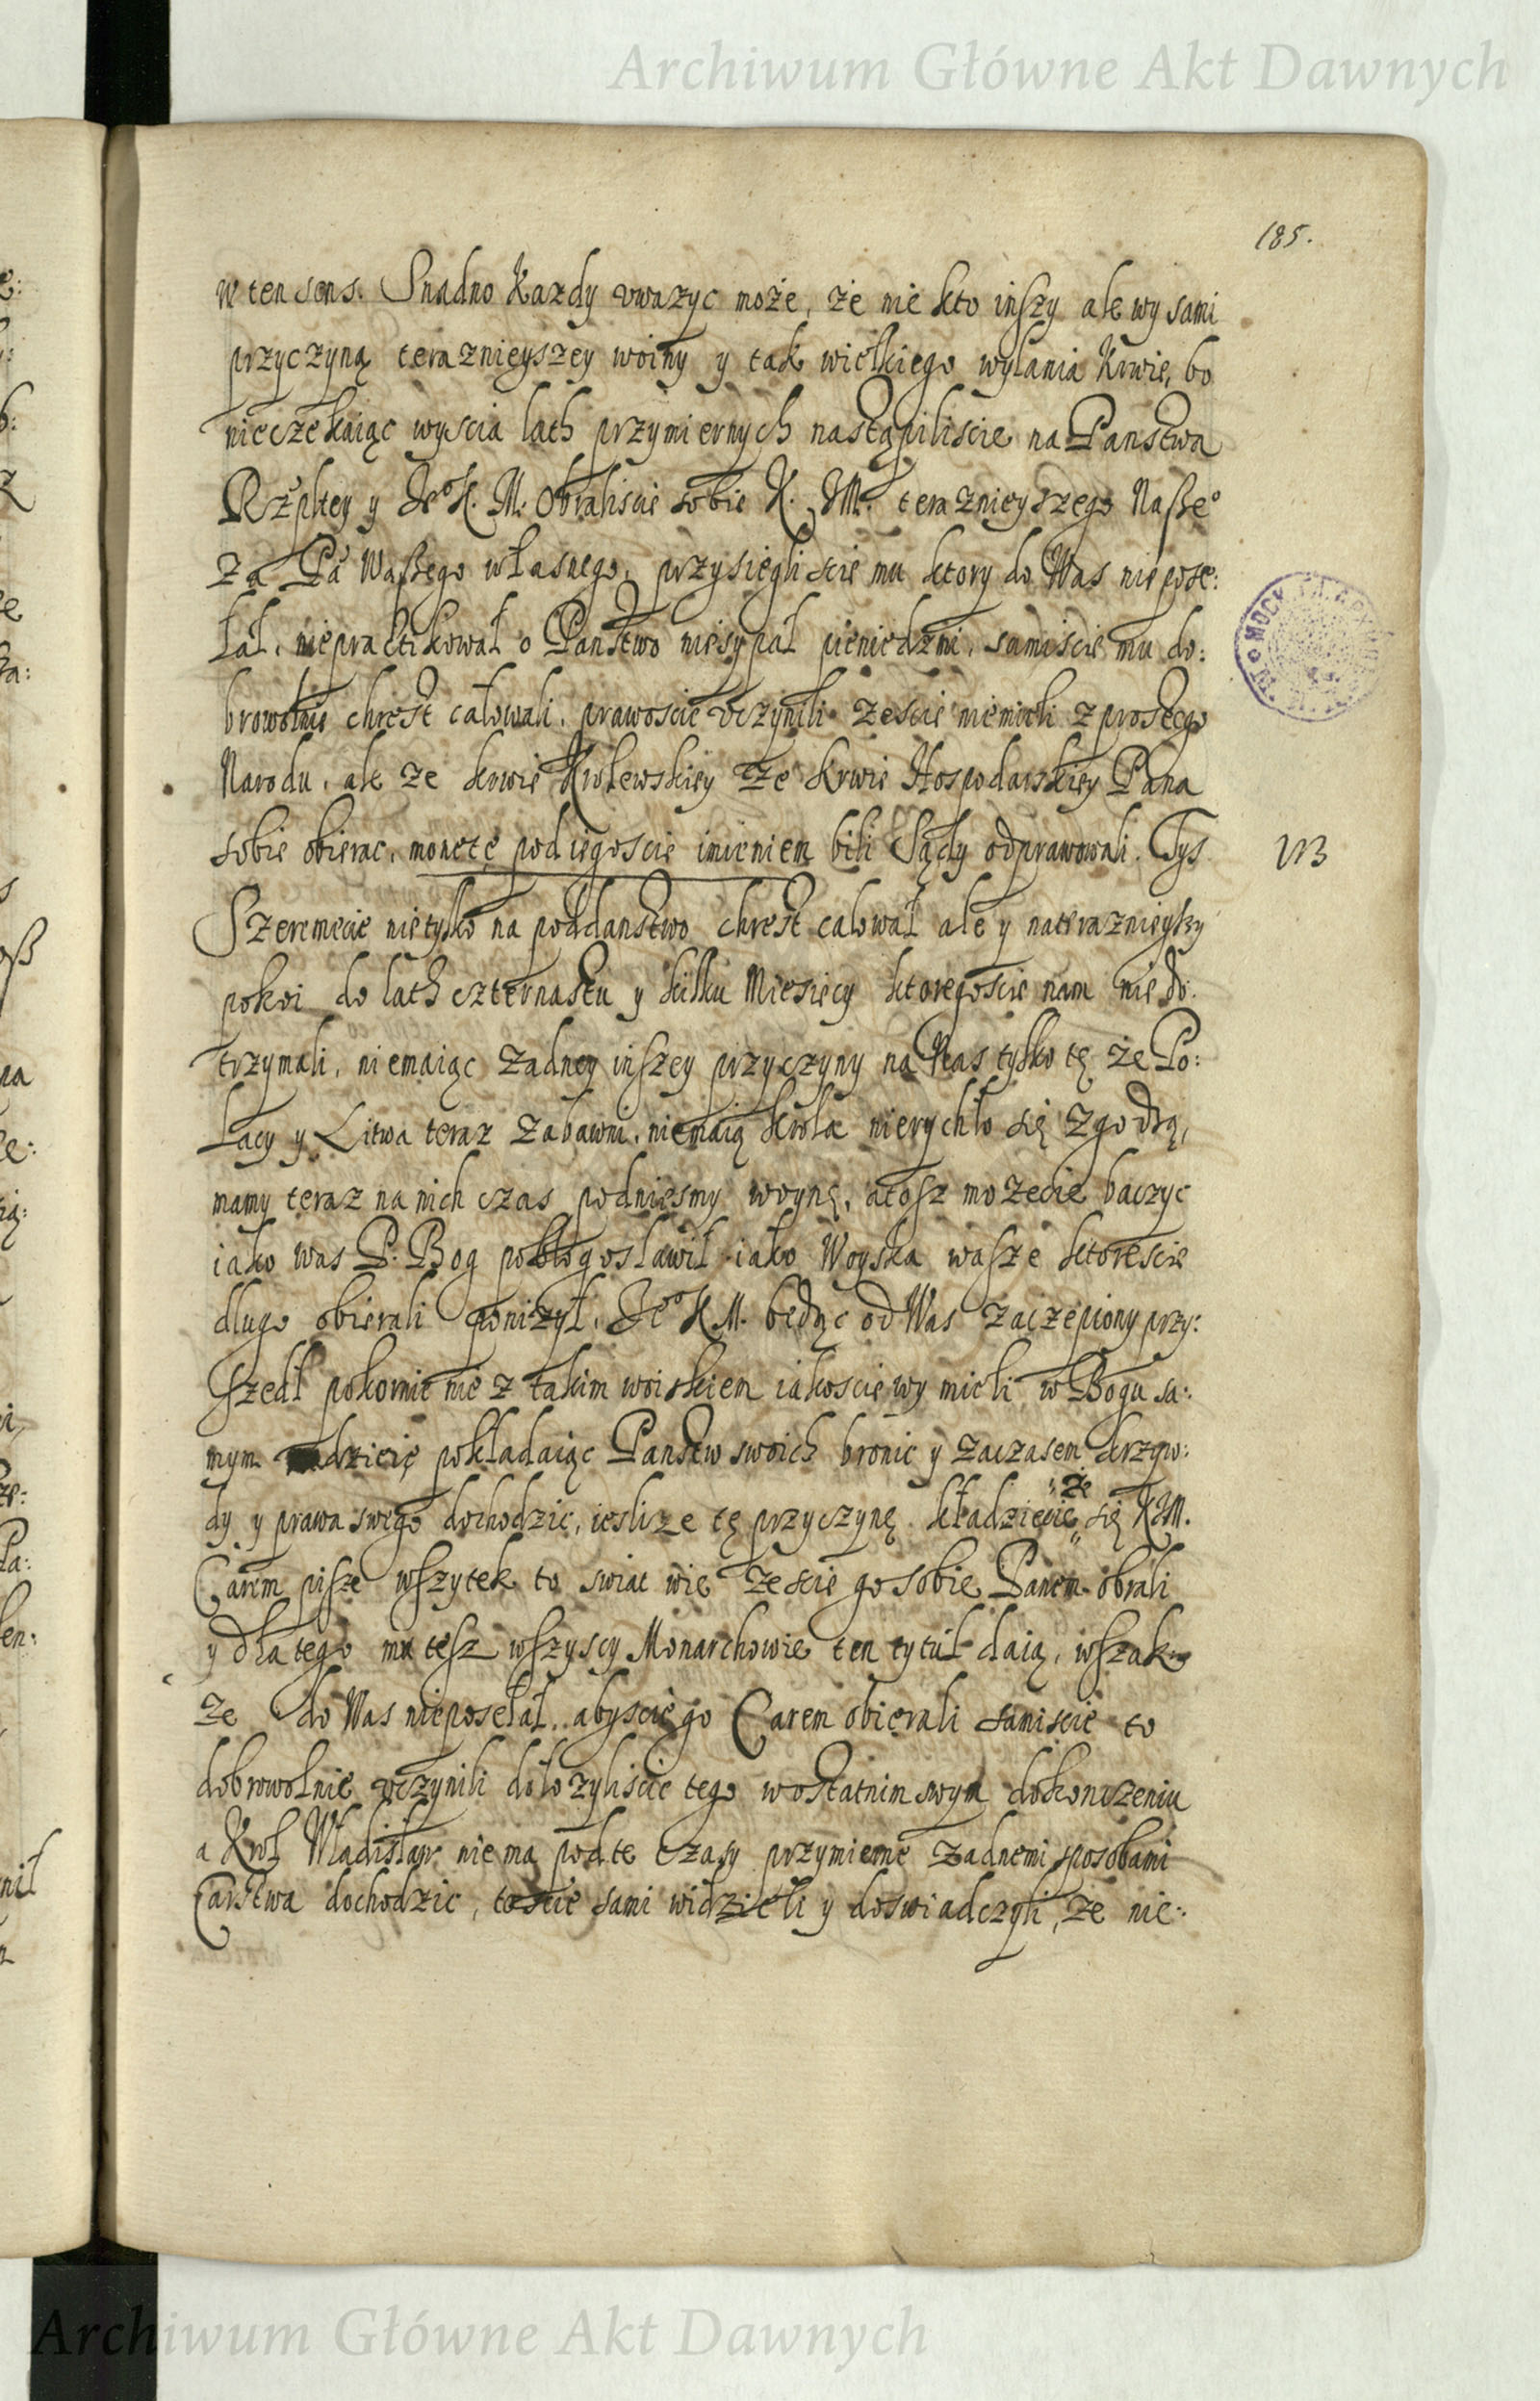 Archiwum Główne Akt Dawnych
185.
w ten sens. Snadno Kazdy vwazyc może, że nie kto inszy ale wy sami
przyczyną teraznieyszey woiny y tak wielkiego wylania Krwie, bo
nieczekaiąc wyscia lath przymiernych nastąpiliscie na Panstwa
Rzpltey y Je° K. M. Obraliscie sobie K. JM. teraznieyszego Nasze°
za Pa Waszego własnego, przysiegliscie mu ktory do Was nie pose:
łał, niepracktikował o Panstwo niesypał pieniedzmi, samiscie mu do:
browolnie chrest całowali, prawoscie vczynili zescie niemieli z prostego
Narodu, ale ze krwie Krolewskiey że krwie Hospodarskiey Pana
sobie obierac, monetę pod iegoscie imieniem bili Sądy odprawowali. Tys
NB
Szeremecie nietylko na poddanstwo chrest całował ale y na teraznieyszy
pokoi do lath czternastu y kilku Miesięcy ktoregoscie nam nie do:
trzymali, niemaiąc zadney inszey przyczyny na Nas tylko tę że Po:
lacy y Litwa teraz zabawni, niemaią Krola nierychło się zgodzą,
mamy teraz na nich czas podniesmy woynę, atosz mozecie baczyc
iako was P. Bog pobłogosławił iako Woyska wasze ktorescie
dlugo obierali poniżył, Je° K M. będąc od Was zaczepiony przy:
szedł pokornie nie z takim woiskiem iakoscie wy mieli w Bogu sa:
mym nadzieię pokładaiąc Panstw swoich bronic y zaczasem krzyw:
dy y prawa swego dochodzic, iesli ze tę przyczynę kładziecie że się K JM.
Carem pisze wszytek to swiat wie zescie go sobie Panem obrali
y dla tego mu tesz wszyscy Monarchowie ten tytuł daią, wszak
że do Was nieposełał, abyscie go Carem obierali samiscie to
dobrowolnie vczynili dołozyliscie tego w ostatnim swym dokonczeniu
a Krol Władisław nie ma pod te czasy przymierne zadnemi sposobami
Carstwa dochodzic, toscie sami widzieli y doswiadczyli, że nie:
Archiwum Główne Akt Dawnych